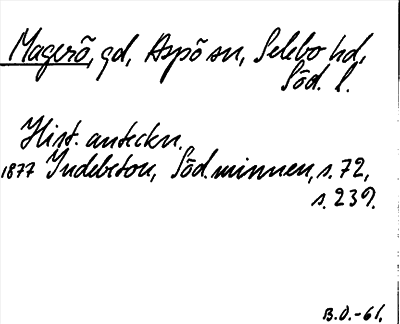 Magerö, gd, Aspö sn, Selebo hd,
Söd. l.
Hist. anteckn.
1877 Indebetou, Söd. minnen, s. 72,
s. 239.
B.O.-61.